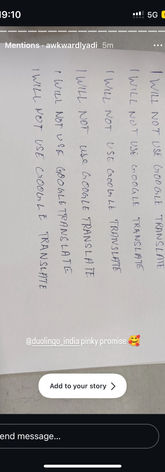 19:10
5G
Mentions · awkwardlyadi 5m
I WILL NOT USE GOOGLE TRANSLATE
I WILL NOT USE GOOGLE TRANSLATE
I WILL NOT USE GOOGLE TRANSLATE
I WILL NOT USE GOOGLE TRANSLATE
I WILL NOT USE GOOGLE TRANSLATE
I WILL NOT USE GOOGLE TRANSLATE
@duolingo_india pinky promise 🥰
Add to your story >
end message...